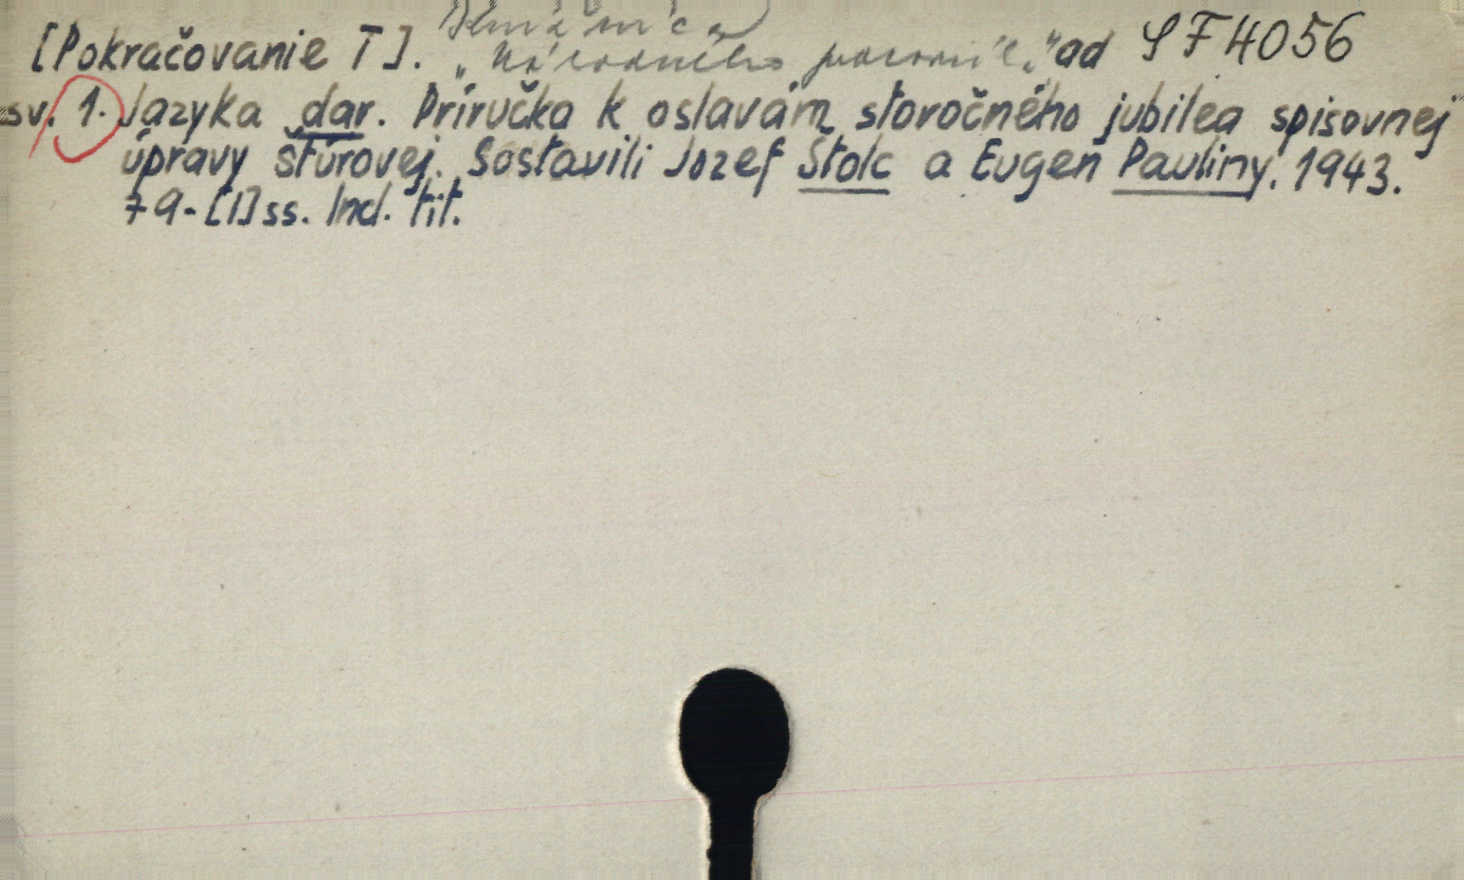 Knižnica
[Pokračovanie I]. „Národného pracovníka" ad SF4056
sv. 1. Jazyka dar. Príručka k oslavám storočného jubilea spisovnej
úpravy štúrovej. Sostavili Jozef Štolc a Eugen Pauliny. 1943.
79-[1] ss. Incl. tit.